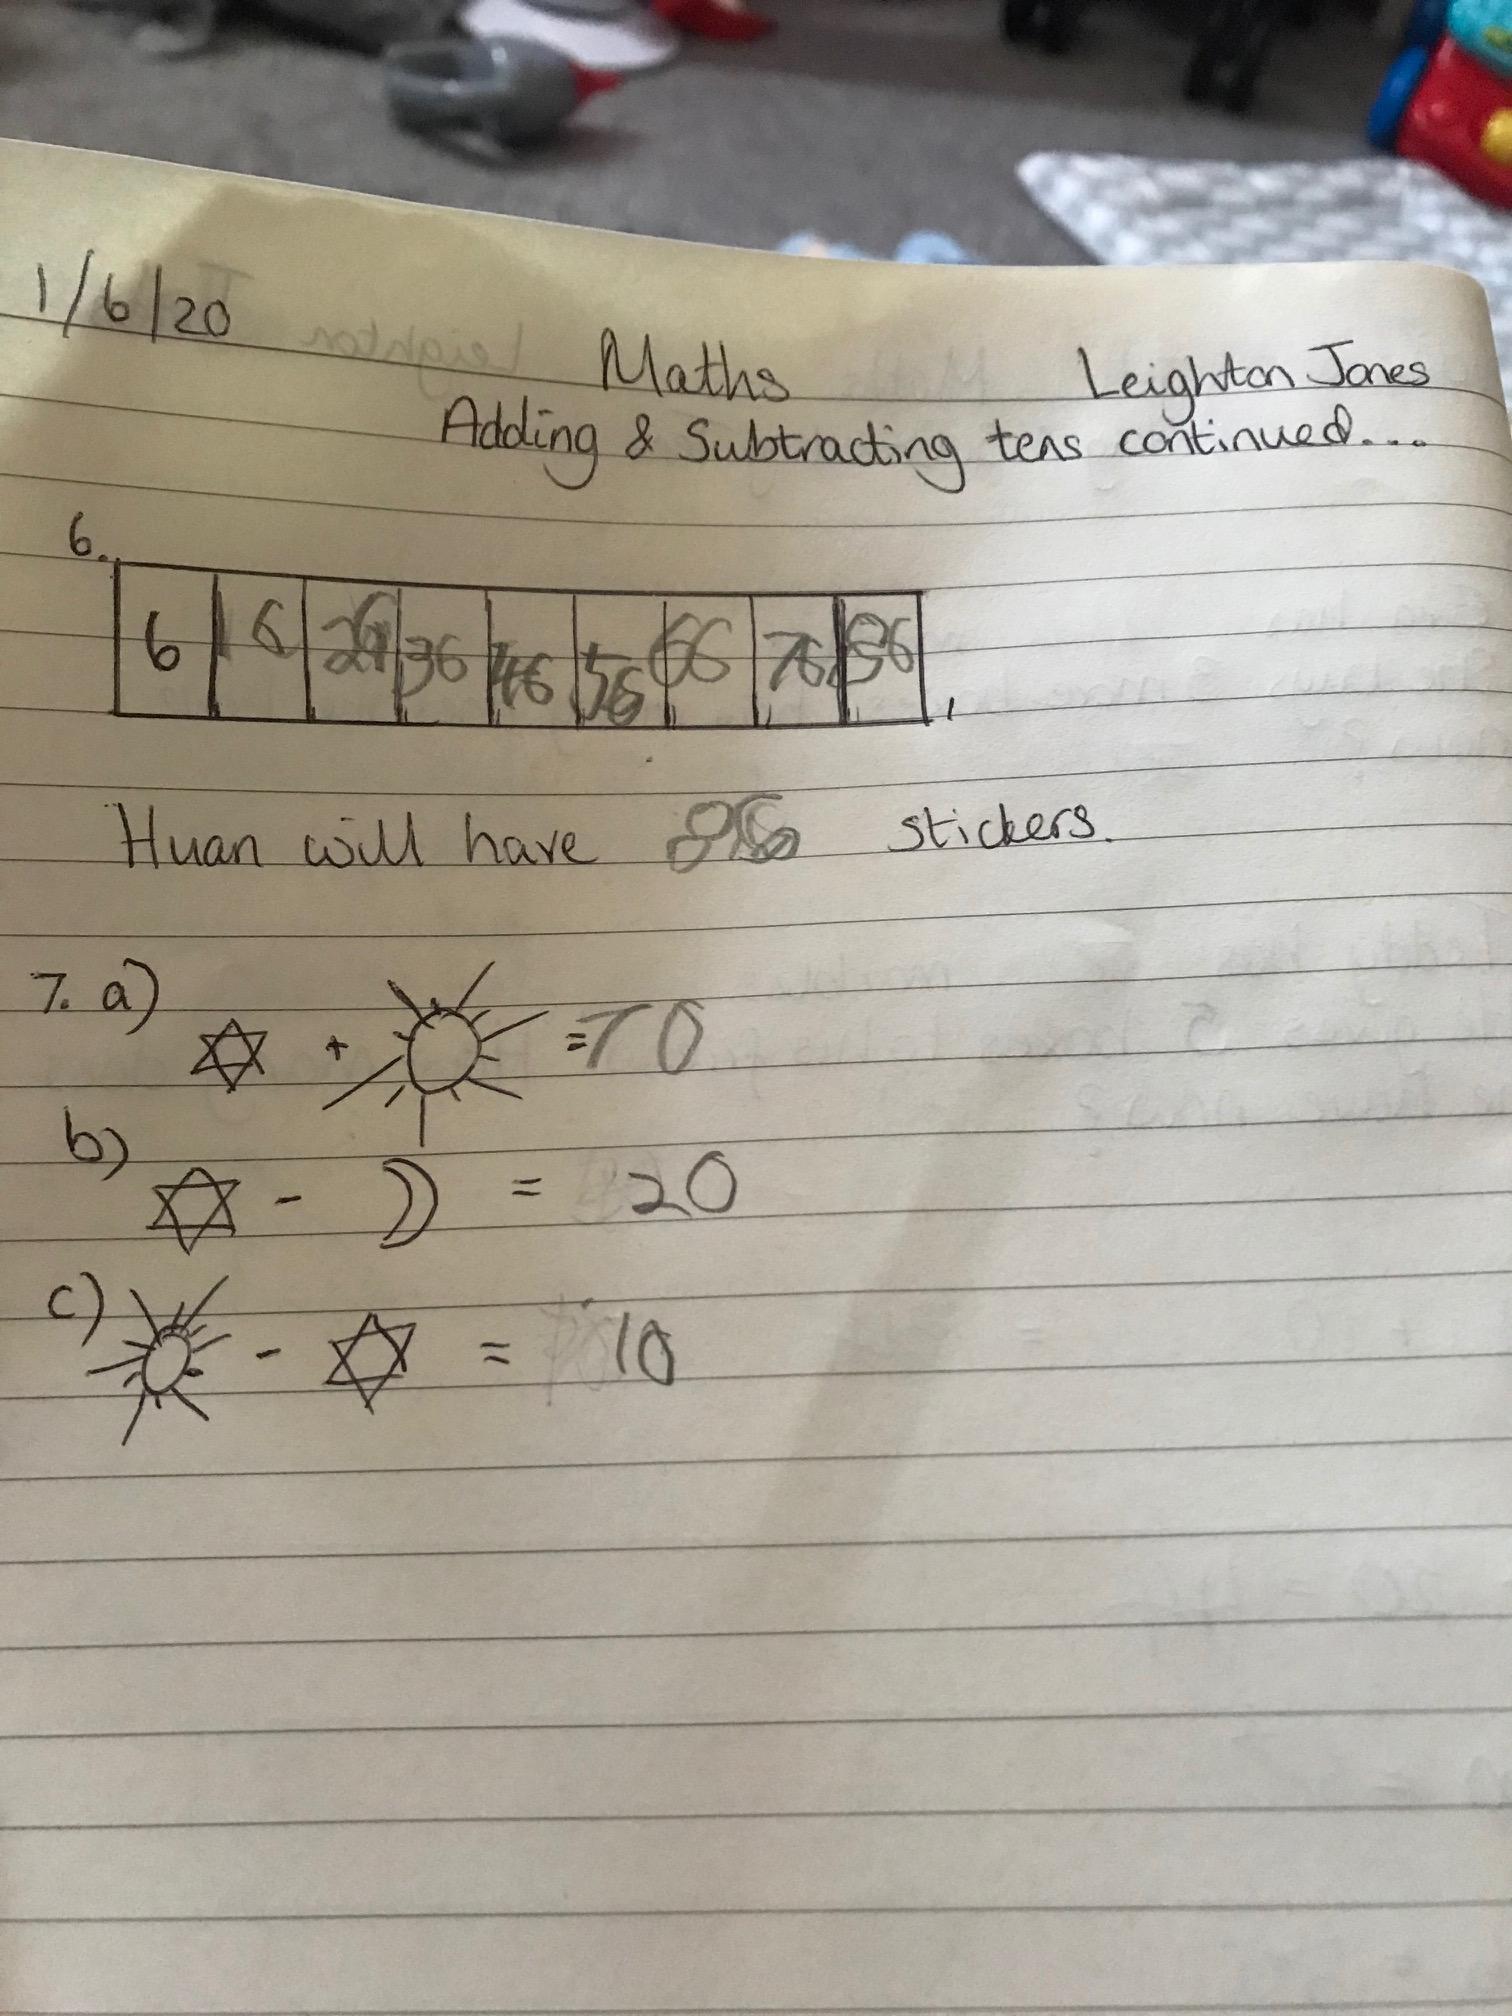 1/6/20
Maths Leighton Jones
Adding & Subtracting tens continued...
6.
6 16 26 36 46 56 66 76 86
Huan will have 86 stickers.
7. a) + = 70
b) - = 20
c) - = 10